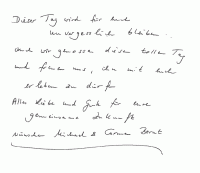 Dieser Tag wird für euch
unvergesslich bleiben ...
und wir genossen diesen tollen Tag
und freuen uns, ihn mit euch
erleben zu dürfen
Alles Liebe und Gute für eure
gemeinsame Zukunft
wünschen Michael &